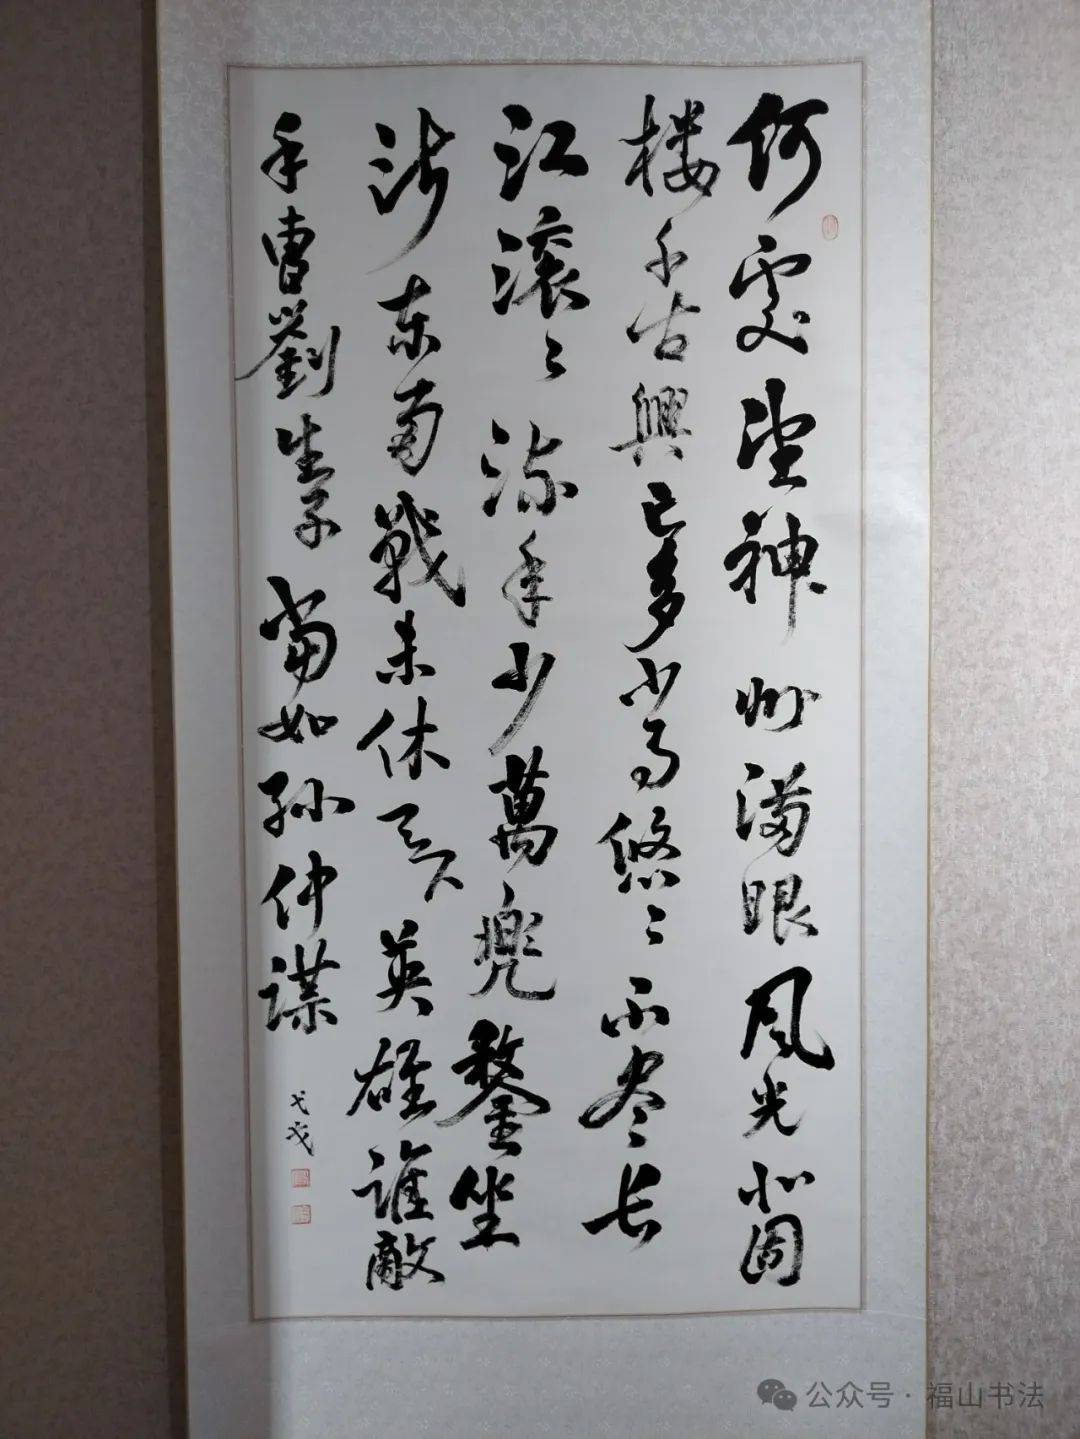 何處望神州滿眼风光北固
楼千古興亡多少事悠々不尽长
江滚々流年少萬兜鍪坐
断东南戰未休天下英雄誰敵
手曹劉生子當如孙仲謀
公众号 · 福山书法